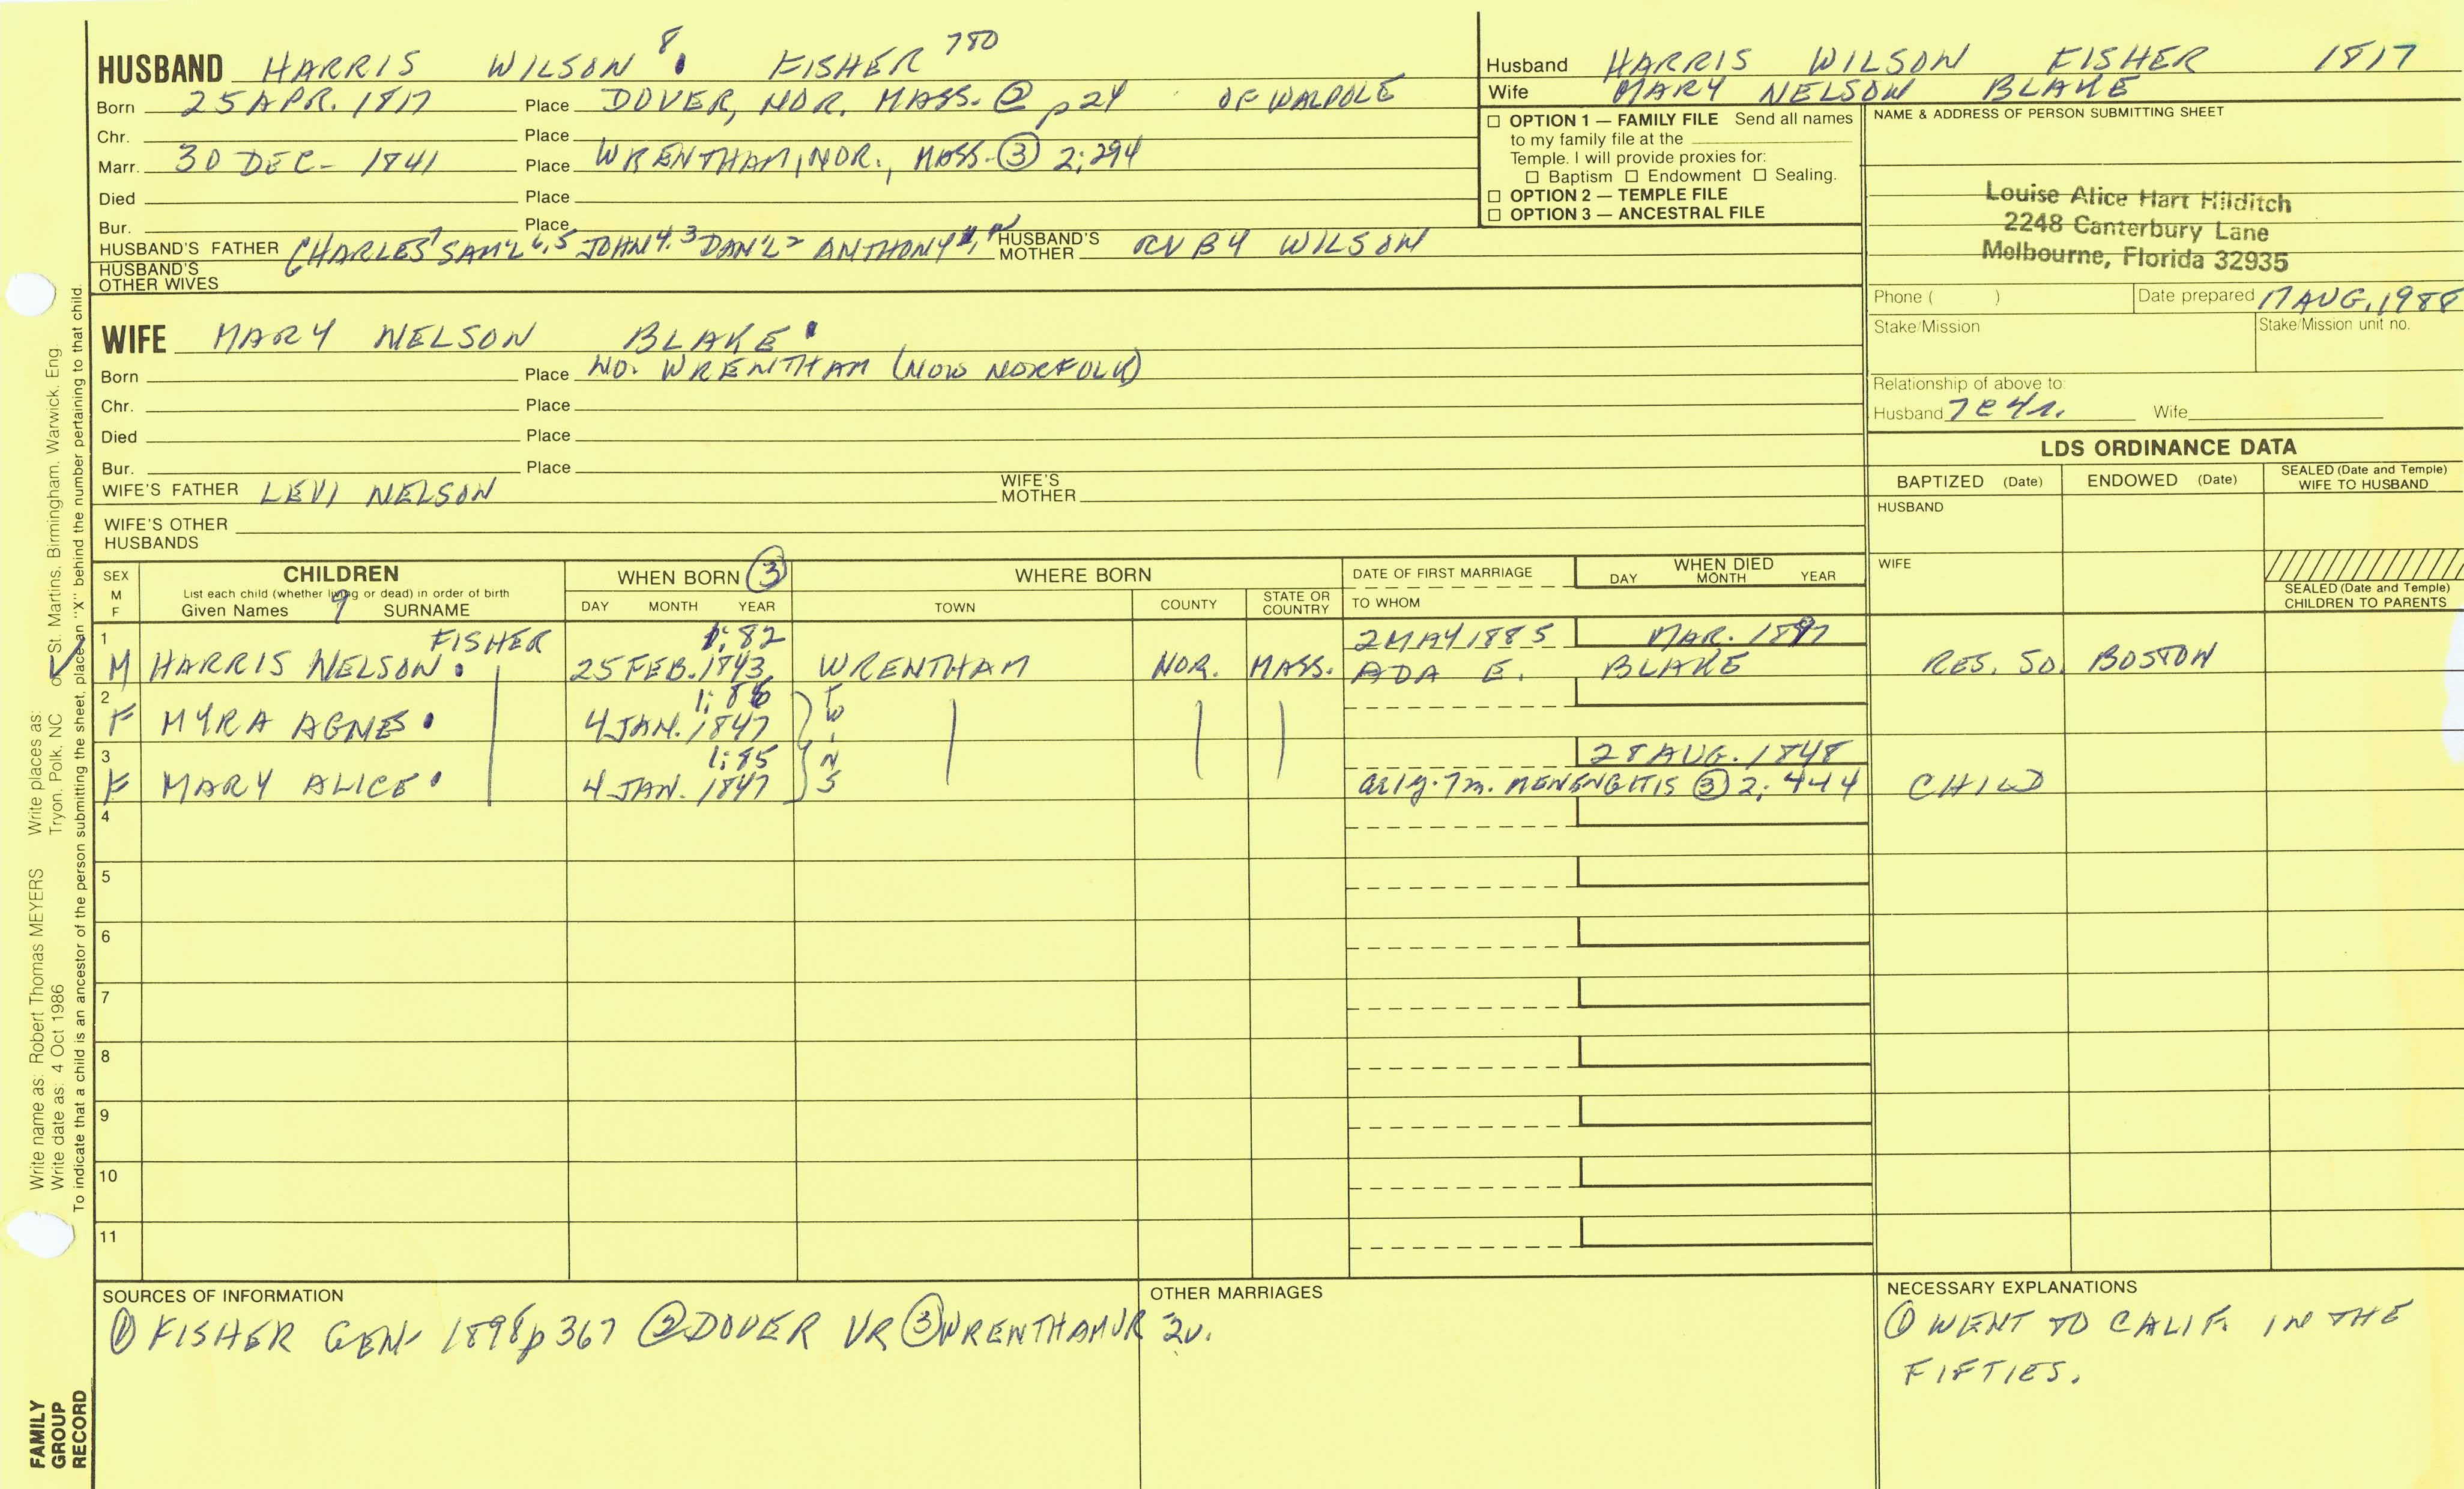 HUSBAND HARRIS WILSON 8. FISHER 780
Born 25 APR. 1817 Place DOVER, NOR. MASS. ② p24 OF WALPOLE
Chr. Place
Marr. 30 DEC- 1841 Place WRENTHAM, NOR., MASS. ③ 2;294
Died Place
Bur. Place
HUSBAND'S FATHER CHARLES7 SAM'L 6,5 JOHN 4,3 DAN'L2 ANTHONY HUSBAND'S MOTHER RUBY WILSON
HUSBAND'S OTHER WIVES
Husband HARRIS WILSON FISHER 1817
Wife MARY NELSON BLAKE
☐ OPTION 1 — FAMILY FILE Send all names
to my family file at the
Temple. I will provide proxies for:
☐ Baptism ☐ Endowment ☐ Sealing.
☐ OPTION 2 — TEMPLE FILE
☐ OPTION 3 — ANCESTRAL FILE
NAME & ADDRESS OF PERSON SUBMITTING SHEET
Louise Alice Hart Hilditch
2248 Canterbury Lane
Melbourne, Florida 32935
Phone ( ) Date prepared 17 AUG. 1988
Stake/Mission Stake/Mission unit no.
Relationship of above to:
Husband 7C4r. Wife
WIFE MARY NELSON BLAKE
Born Place NO. WRENTHAM (NOW NORFOLK)
Chr. Place
Died Place
Bur. Place
WIFE'S FATHER LEVI NELSON WIFE'S MOTHER
WIFE'S OTHER HUSBANDS
LDS ORDINANCE DATA
BAPTIZED (Date) ENDOWED (Date) SEALED (Date and Temple) WIFE TO HUSBAND
HUSBAND
WIFE
SEALED (Date and Temple) CHILDREN TO PARENTS
SEX M F CHILDREN WHEN BORN ③ WHERE BORN DATE OF FIRST MARRIAGE WHEN DIED
List each child (whether living or dead) in order of birth DAY MONTH YEAR
Given Names 9 SURNAME DAY MONTH YEAR TOWN COUNTY STATE OR COUNTRY TO WHOM
1 FISHER 1;82 2 MAY 1885 MAR. 1897
M HARRIS NELSON. 25 FEB. 1843 WRENTHAM NOR. MASS. ADA E. BLAKE RES. SO. BOSTON
2 1;86
F MYRA AGNES. 4 JAN. 1847 TWINS
3 1;85 28 AUG. 1848
F MARY ALICE. 4 JAN. 1847 ae 1y. 7m. MENENGITIS ③ 2;444 CHILD
4
5
6
7
8
9
10
11
SOURCES OF INFORMATION
① FISHER GEN- 1898 p367 ② DOVER VR ③ WRENTHAM VR 2v.
OTHER MARRIAGES
NECESSARY EXPLANATIONS
① WENT TO CALIF. IN THE
FIFTIES.
Write name as: Robert Thomas MEYERS Write places as: Tryon, Polk, NC or St. Martins, Birmingham, Warwick, Eng.
Write date as: 4 Oct 1986
To indicate that a child is an ancestor of the person submitting the sheet, place an "X" behind the number pertaining to that child.
FAMILY
GROUP
RECORD